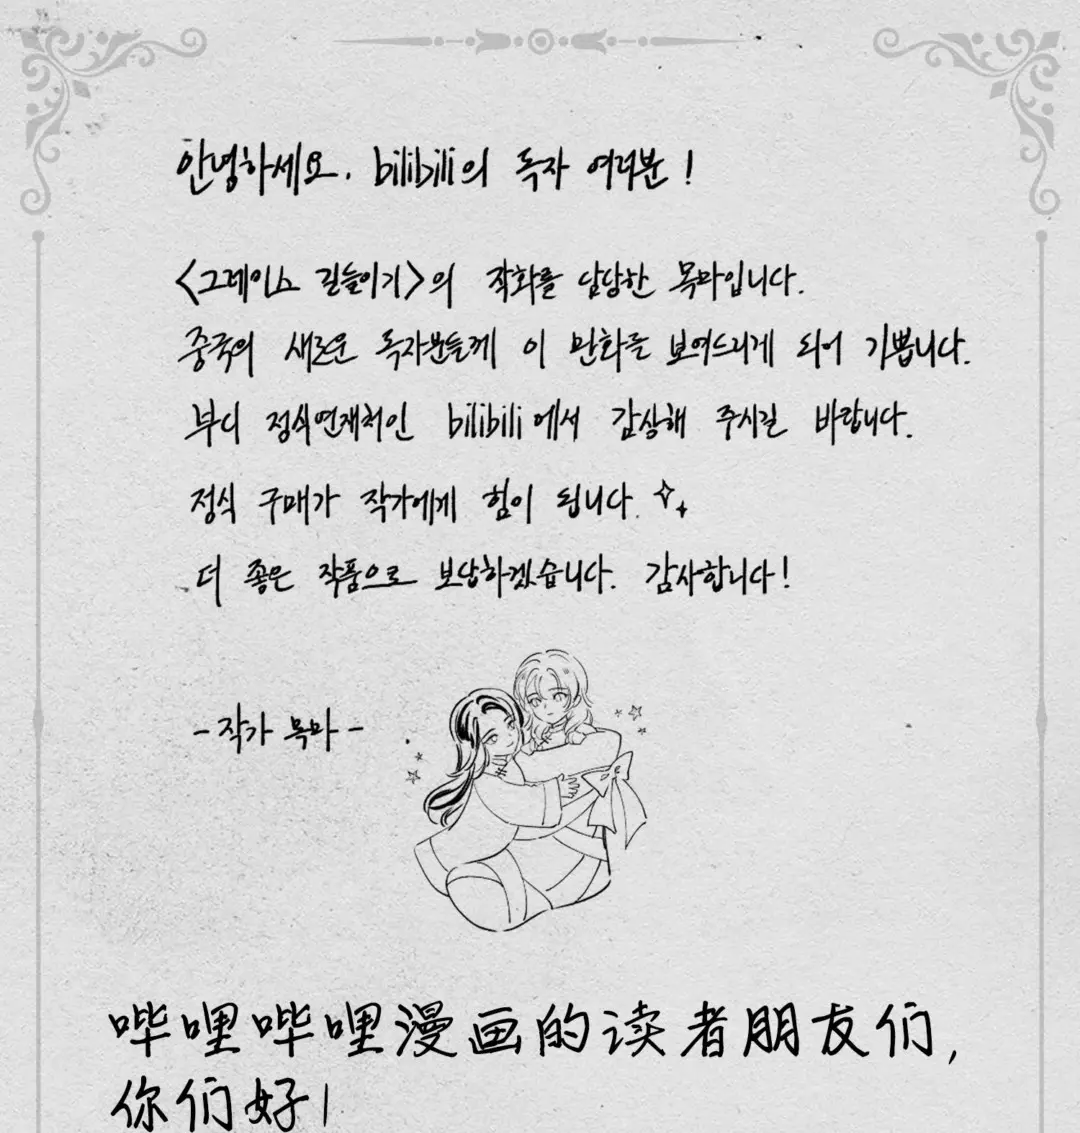 안녕하세요, bilibili의 독자 여러분!
<그레이스 길들이기>의 작화를 담당한 목마입니다.
중국의 새로운 독자분들께 이 만화를 보여드리게 되어 기쁩니다.
부디 정식연재처인 bilibili에서 감상해 주시길 바랍니다.
정식 구매가 작가에게 힘이 됩니다.
더 좋은 작품으로 보답하겠습니다. 감사합니다!
- 작가 목마 -
哔哩哔哩漫画的读者朋友们,
你们好!